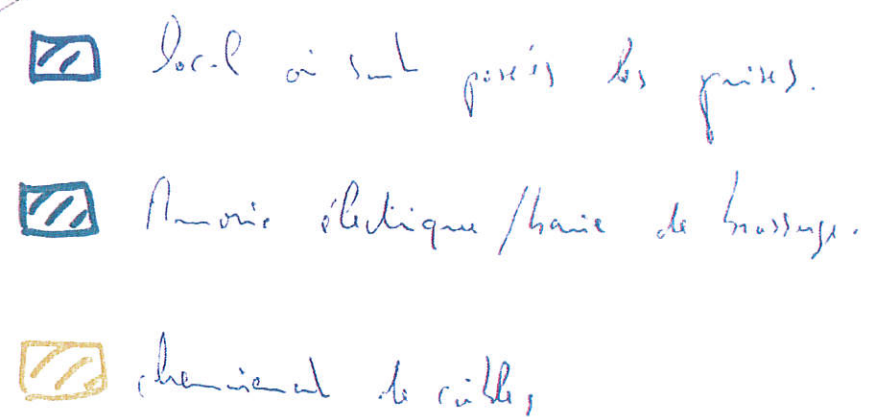 local où sont posés les prises.
Armoire électrique/baie de brassage.
cheminement de câbles